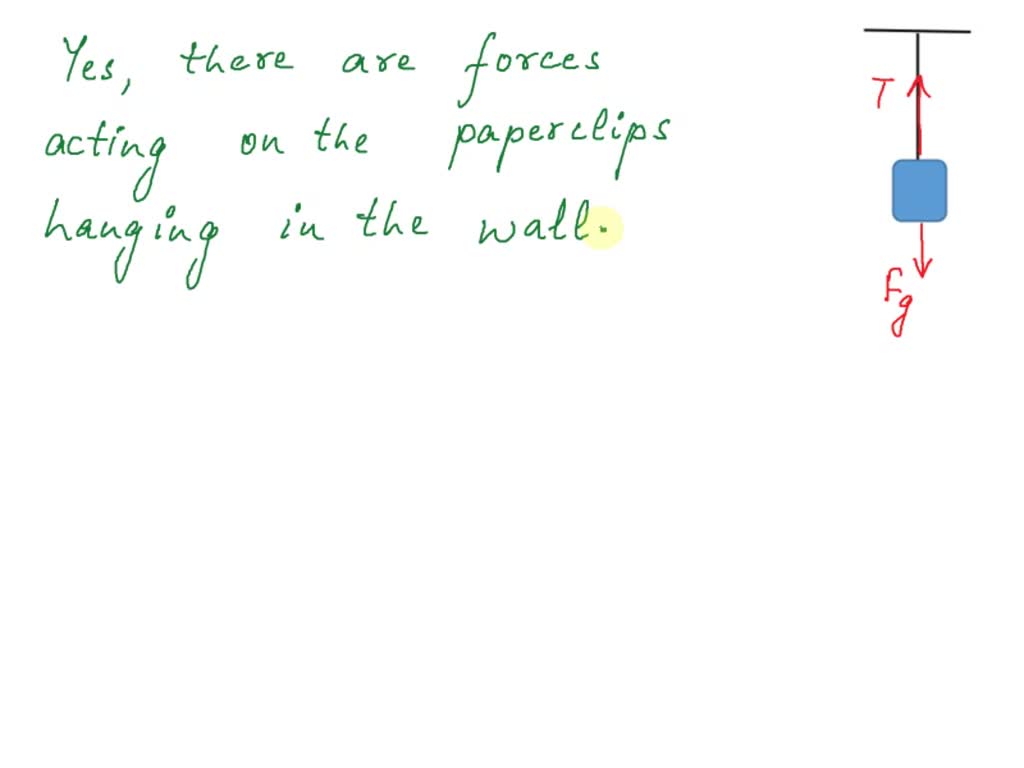 Yes, there are forces
acting on the paperclips
hanging in the wall.
T
Fg